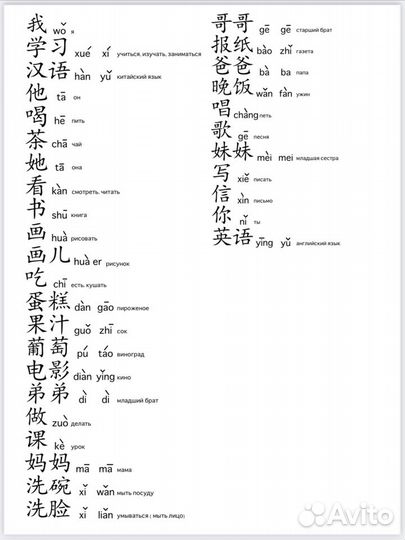 我 wǒ я
学习 xué xí учиться, изучать, заниматься
汉语 hàn yǔ китайский язык
他 tā он
喝 hē пить
茶 chā чай
她 tā она
看 kàn смотреть, читать
书 shū книга
画 huà рисовать
画儿 huà er рисунок
吃 chī есть, кушать
蛋糕 dàn gāo пироженое
果汁 guǒ zhī сок
葡萄 pú táo виноград
电影 diàn yǐng кино
弟弟 dì dì младший брат
做 zuò делать
课 kè урок
妈妈 mā mā мама
洗碗 xǐ wǎn мыть посуду
洗脸 xǐ liǎn умываться ( мыть лицо)
哥哥 gē gē старший брат
报纸 bào zhǐ газета
爸爸 bà ba папа
晚饭 wǎn fàn ужин
唱 chàng петь
歌 gē песня
妹妹 mèi mei младшая сестра
写 xiě писать
信 xìn письмо
你 nǐ ты
英语 yīng yǔ английский язык
Avito